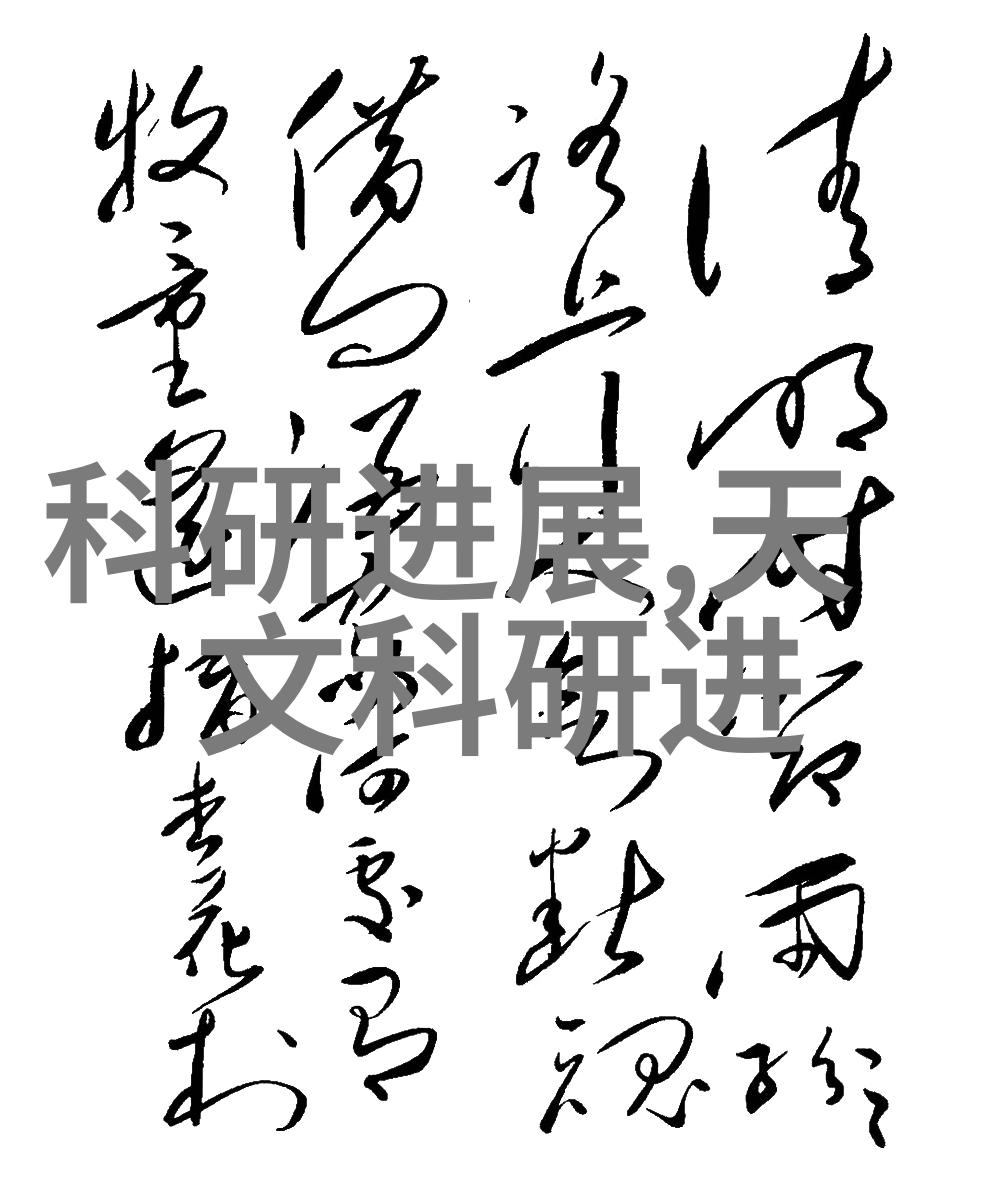 清明时节雨纷纷
路上行人欲断魂
借问酒家何处有
牧童遥指杏花村
科研进展,天
文科研进